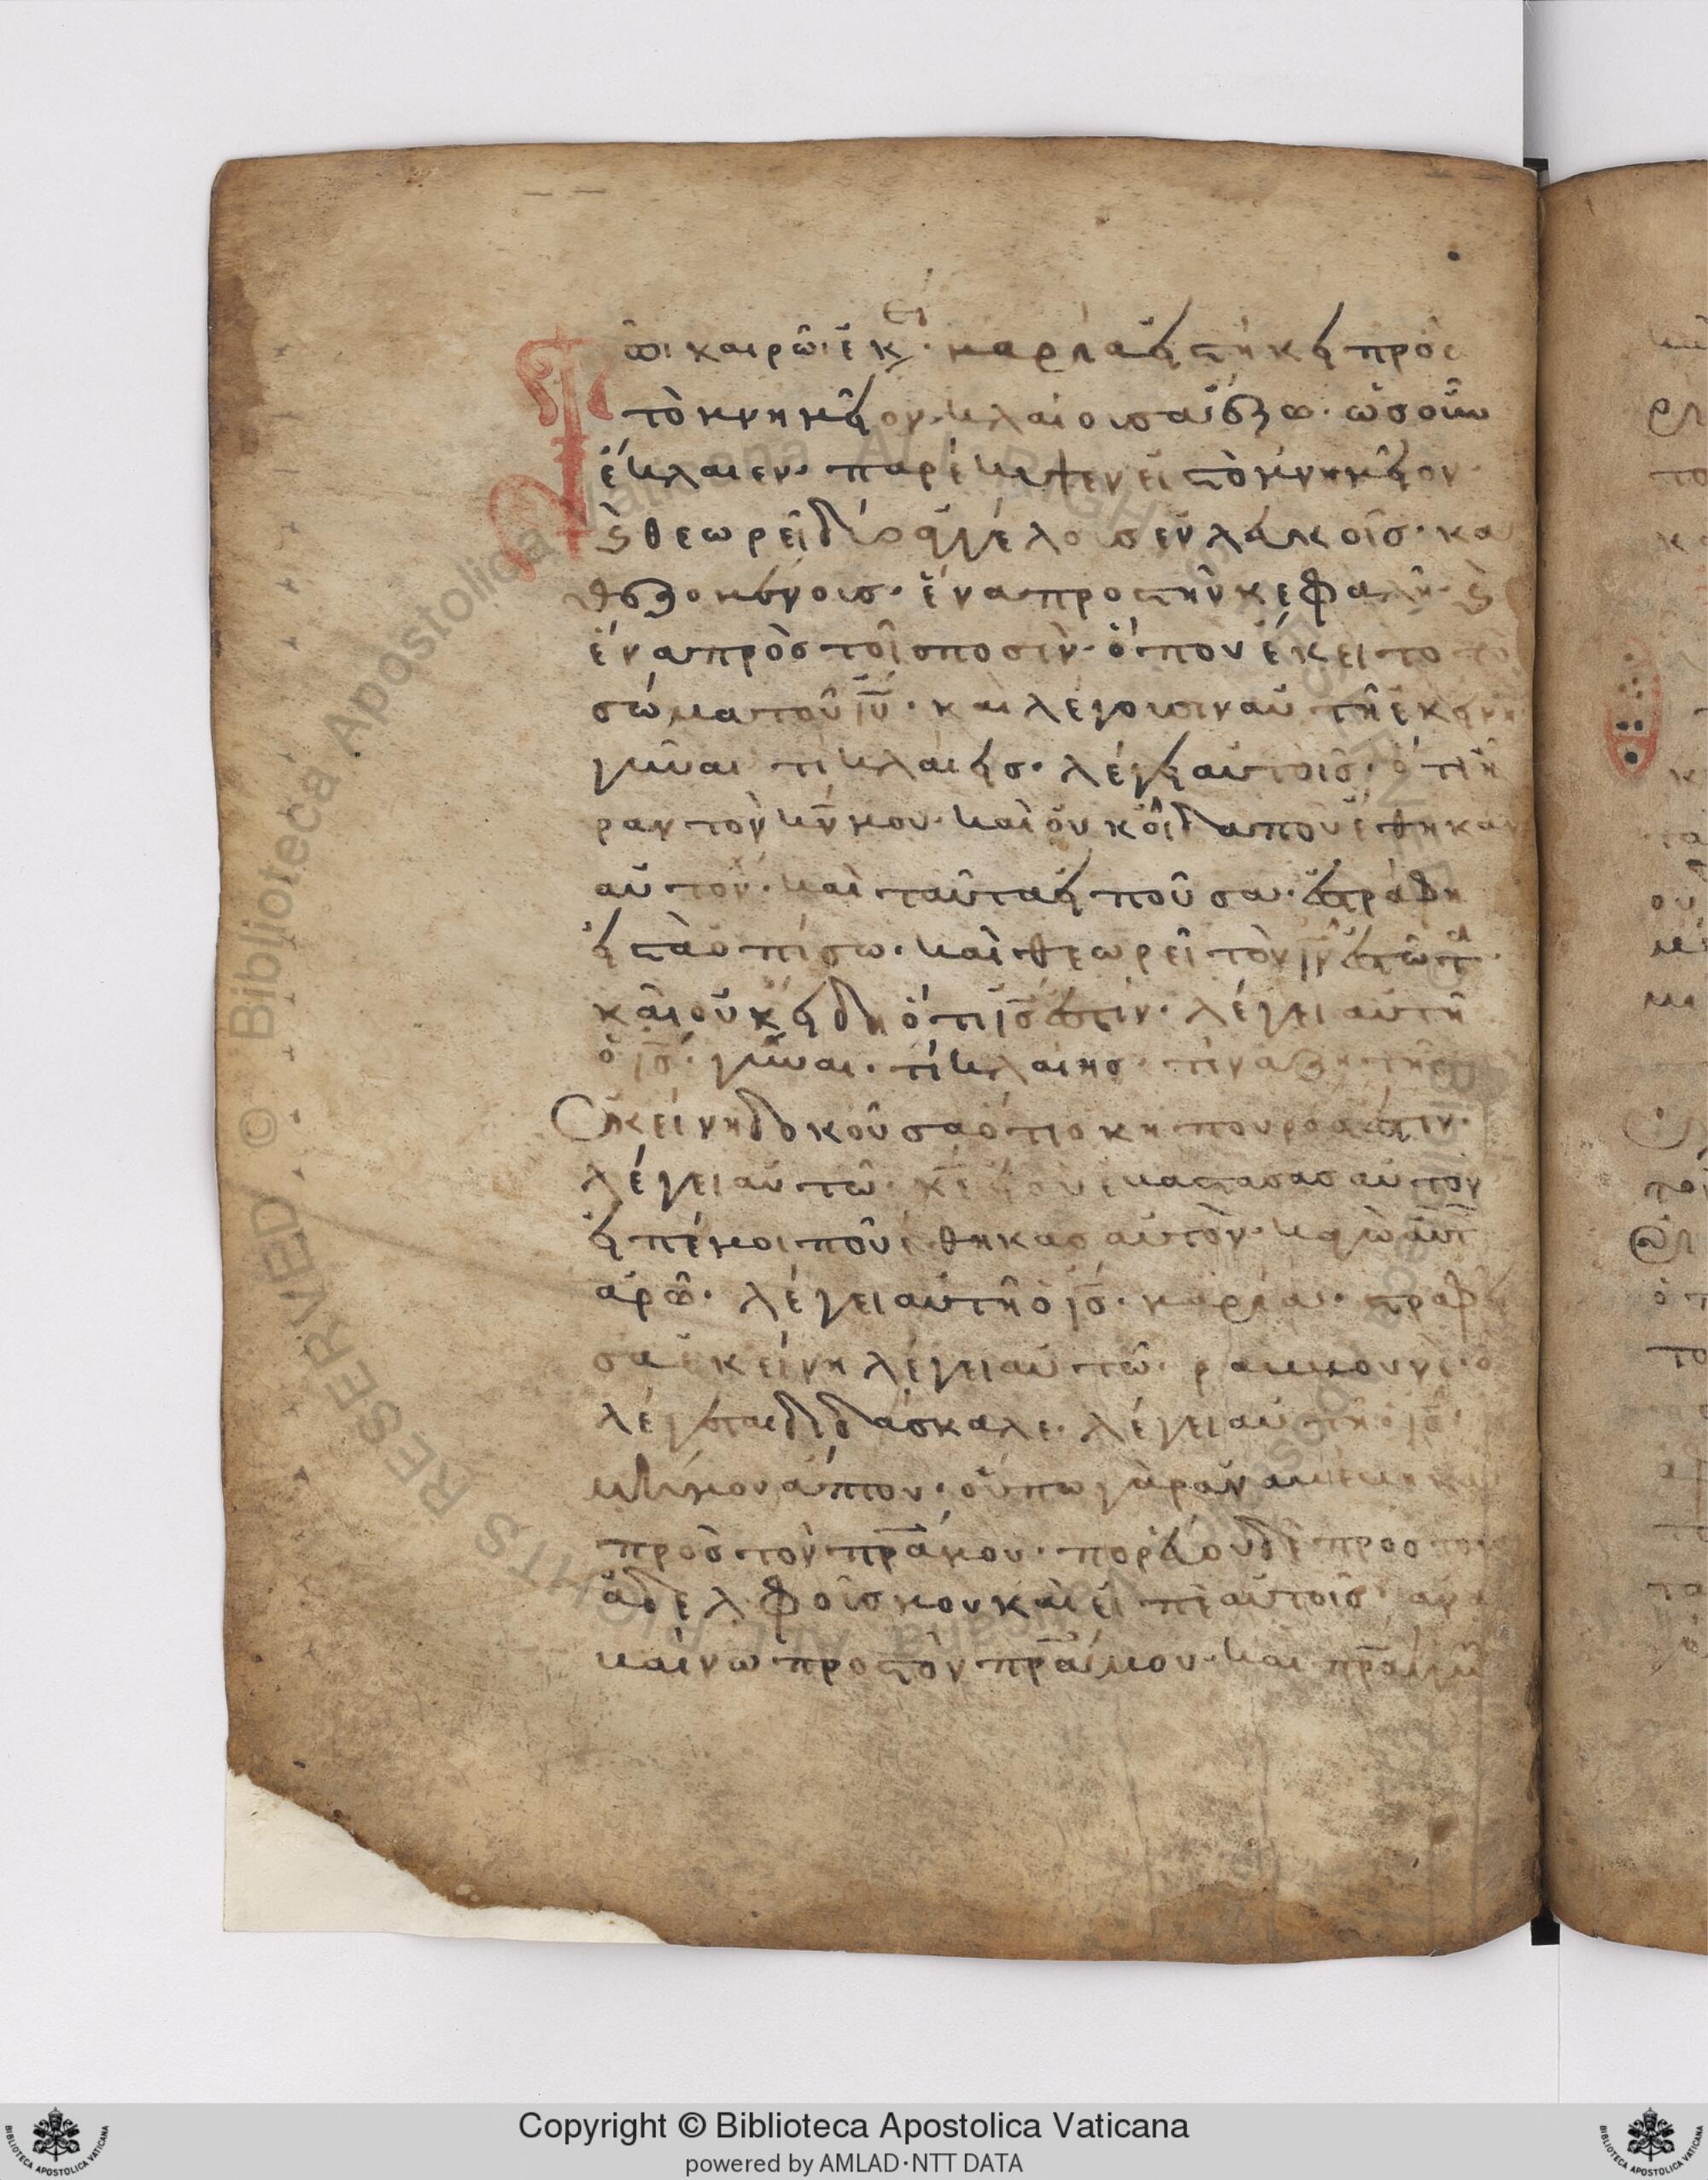 Τῶι καιρῶι ἐκει· μαρία εἱστήκει πρὸς
τὸ μνημεῖον κλαίουσα ἔξω· ὡς οὖν
ἔκλαιεν· παρέκυψεν εἰς τὸ μνημεῖον·
ϗ θεωρεῖ δύο ἀγγέλους ἐν λευκοῖς· κα
θεζομένους· ἕνα προς τὴν κεφαλὴν· ϗ
ἕνα πρὸς τοῖς ποσὶν· ὅπου ἔκειτο το
σώμα τοῦ ἰῦ· και λεγουσιν αὐτῆ ἐκεινη
γῦναι τι κλαίεις· λέγει αὐτοῖς· ὅτι ἦ
ραν τὸν κν̄ μου· καὶ οὐκ οἶδα ποὺ ἔθηκαν
αὐτόν· καὶ ταῦτα εἰποῦσα· ἐστράφη
εἰς τὰ ὀπίσω· καὶ θεωρεῖ τὸν ιν̄ ἑστῶτα·
καὶ οὐκ ἤδει ὅτι ις̄ ἐστίν· λέγει αὐτῆ
ὁ ις̄· γύναι· τί κλαίης· τίνα ζητῆς
Ἐκείνη δοκοῦσα ὅτι ο κηπουρός ἐστιν·
λέγει αὐτῶ· κε̄ εἰ σὺ ἐβάστασας αὐτὸν
εἰπέ μοι ποῦ ἔθηκας αὐτὸν· καγὼ αὐτ
ἀρῶ· λέγει αὐτῆ ὁ ις̄· μαρία· στραφεῖ
σα ἐκείνη λέγει αὐτῶ· ραββουνὶ· ὁ
λέγεται διδάσκαλε· λέγει αὐτῆ ὁ ις̄·
μή μου ἅπτου· οὔπω γὰρ ἀναβέβηκα
πρὸς τὸν πρ̄α μου· πορεύου δὲ προς τους
ἀδελφοῖς μου καὶ εἰπὲ αὐτοῖς· ἀνα
βαίνω προς τὸν πρ̄α μου· καὶ πρ̄α ὑμῶ